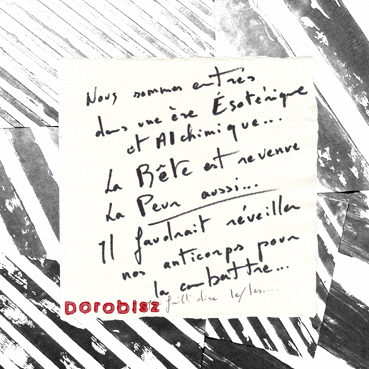 Nous sommes entrés
dans une ère Ésotérique
et Alchimique...
La Bête est revenue
La Peur aussi...
Il faudrait réveiller
nos anticorps pour
la combattre...
Dorobisz